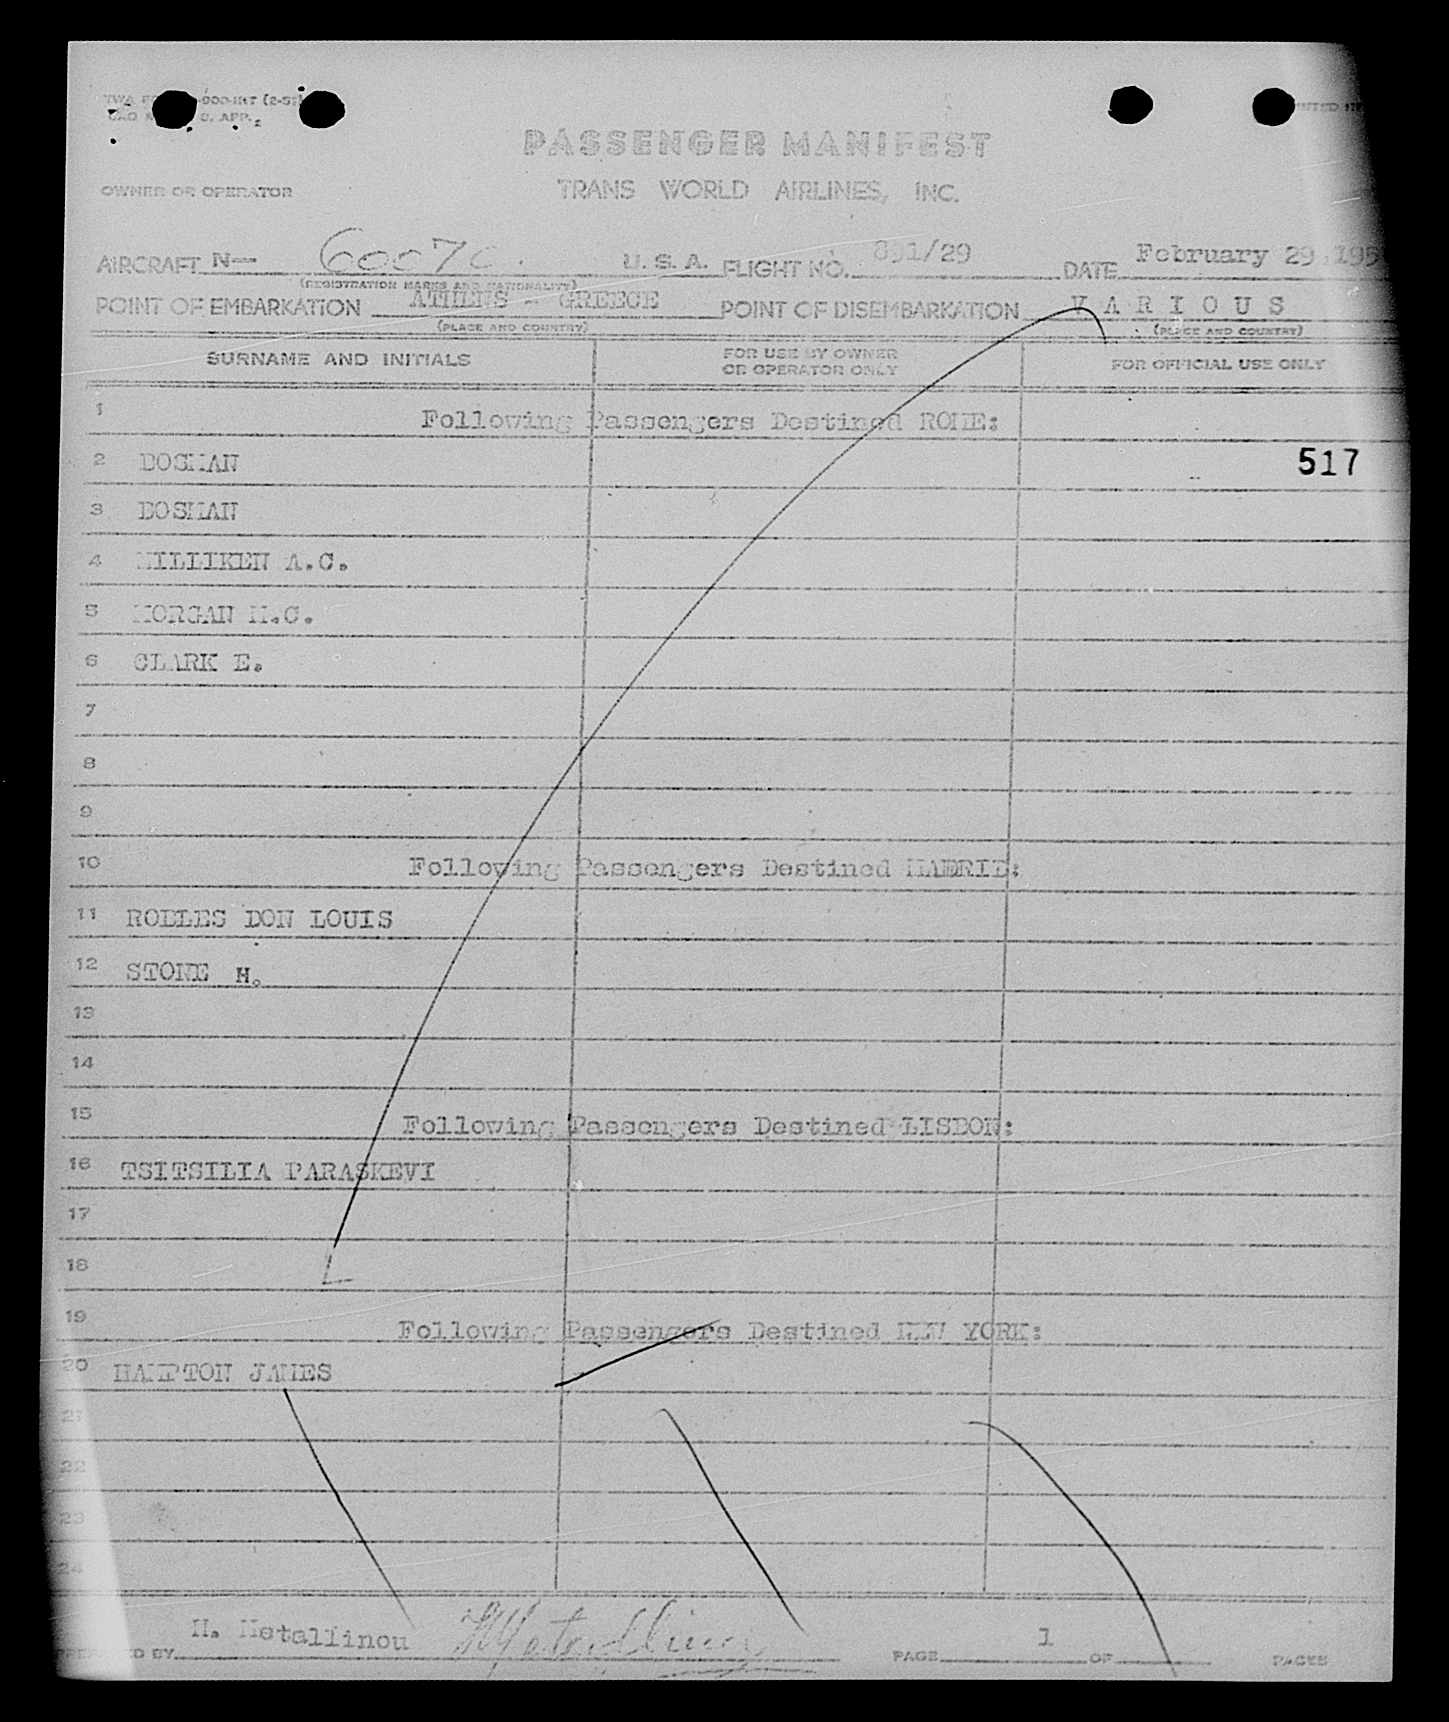 PASSENGER MANIFEST
OWNER OR OPERATOR TRANS WORLD AIRLINES, INC.
AIRCRAFT N— 6007C. U. S. A. FLIGHT NO. 891/29 DATE February 29 195
(REGISTRATION MARKS AND NATIONALITY)
POINT OF EMBARKATION ATHENS - GREECE POINT OF DISEMBARKATION V A R I O U S
(PLACE AND COUNTRY) (PLACE AND COUNTRY)
SURNAME AND INITIALS FOR USE BY OWNER OR OPERATOR ONLY FOR OFFICIAL USE ONLY
1 Following Passengers Destined ROME:
2 BOSMAN 517
3 BOSMAN
4 MILLIKEN A.C.
5 MORGAN M.C.
6 CLARK E.
7
8
9
10 Following Passengers Destined MADRID:
11 ROBLES DON LOUIS
12 STONE H.
13
14
15 Following Passengers Destined LISBON:
16 TSITSILIA PARASKEVI
17
18
19 Following Passengers Destined NEW YORK:
20 HAMPTON JAMES
21
22
23
24
PREPARED BY M. Metallinou PAGE 1 OF PAGES